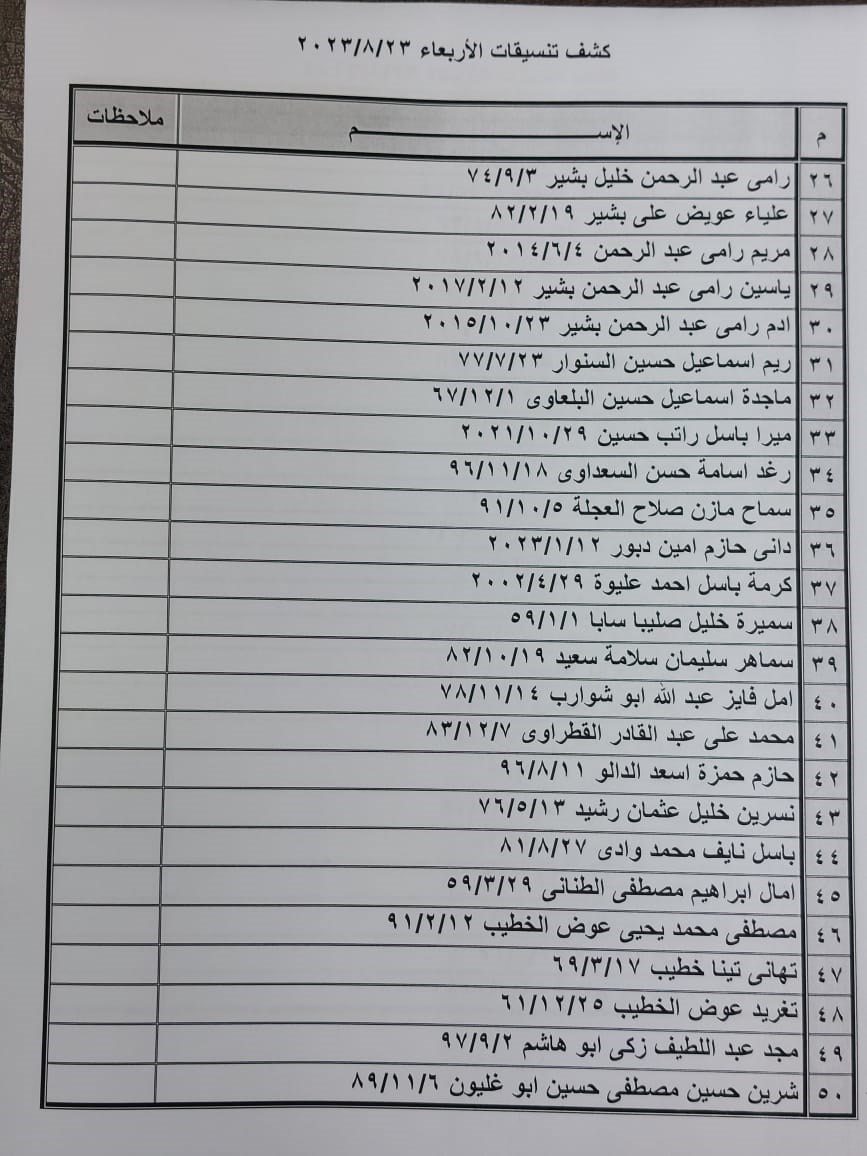 كشف تنسيقات الأربعاء ٢٠٢٣/٨/٢٣
م الإســـــــــــــــــــــــم ملاحظات
٢٦ رامى عبد الرحمن خليل بشير ٧٤/٩/٣
٢٧ علياء عويض على بشير ٨٢/٢/١٩
٢٨ مريم رامى عبد الرحمن ٢٠١٤/٦/٤
٢٩ ياسين رامى عبد الرحمن بشير ٢٠١٧/٢/١٢
٣٠ ادم رامى عبد الرحمن بشير ٢٠١٥/١٠/٢٣
٣١ ريم اسماعيل حسين السنوار ٧٧/٧/٢٣
٣٢ ماجدة اسماعيل حسين البلعاوى ٦٧/١٢/١
٣٣ ميرا باسل راتب حسين ٢٠٢١/١٠/٢٩
٣٤ رغد اسامة حسن السعداوى ٩٦/١١/١٨
٣٥ سماح مازن صلاح العجلة ٩١/١٠/٥
٣٦ دانى حازم امين دبور ٢٠٢٣/١/١٢
٣٧ كرمة باسل احمد عليوة ٢٠٠٢/٤/٢٩
٣٨ سميرة خليل صليبا سابا ٥٩/١/١
٣٩ سماهر سليمان سلامة سعيد ٨٢/١٠/١٩
٤٠ امل فايز عبد الله ابو شوارب ٧٨/١١/١٤
٤١ محمد على عبد القادر القطراوى ٨٣/١٢/٧
٤٢ حازم حمزة اسعد الدالو ٩٦/٨/١١
٤٣ نسرين خليل عثمان رشيد ٧٦/٥/١٣
٤٤ باسل نايف محمد وادى ٨١/٨/٢٧
٤٥ امال ابراهيم مصطفى الطنانى ٥٩/٣/٢٩
٤٦ مصطفى محمد يحيى عوض الخطيب ٩١/٢/١٢
٤٧ تهانى تينا خطيب ٦٩/٣/١٧
٤٨ تغريد عوض الخطيب ٦١/١٢/٢٥
٤٩ مجد عبد اللطيف زكى ابو هاشم ٩٧/٩/٢
٥٠ شرين حسين مصطفى حسين ابو غليون ٨٩/١١/٦